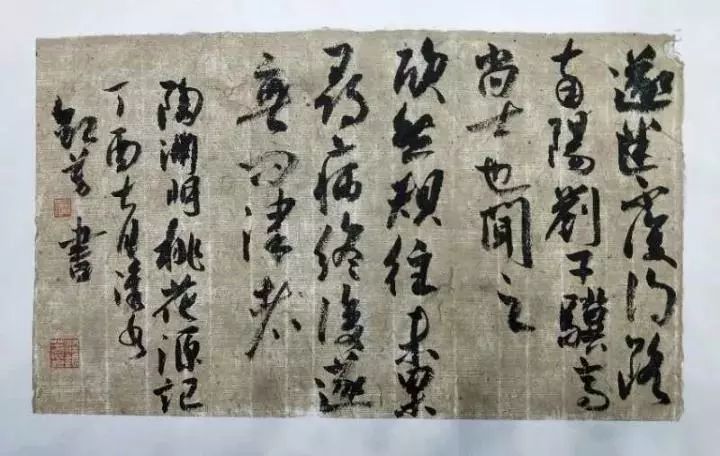 遂迷不復得路
南陽劉子驥高
尚士也聞之
欣然規往未果
尋病終後遂
無問津者
陶淵明桃花源記
丁酉七月
書